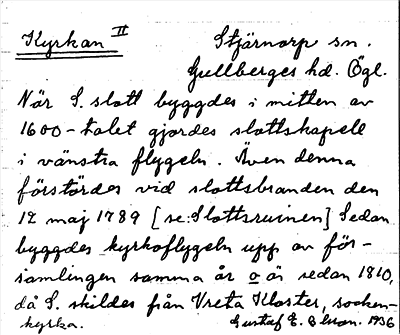 Kyrkan II
Stjärnorp sn.
Gullbergs hd. Ögl.
När S. slott byggdes i mitten av
1600-talet gjordes slottskapell
i vänstra flygeln. Även denna
förstördes vid slottsbranden den
12 maj 1789 [se: Slottsruinen] Sedan
byggdes kyrkoflygeln upp av för-
samlingen samma år o är sedan 1810,
då S. skildes från Vreta Kloster, socken-
kyrka.
Gustaf E. Olsson. 1936